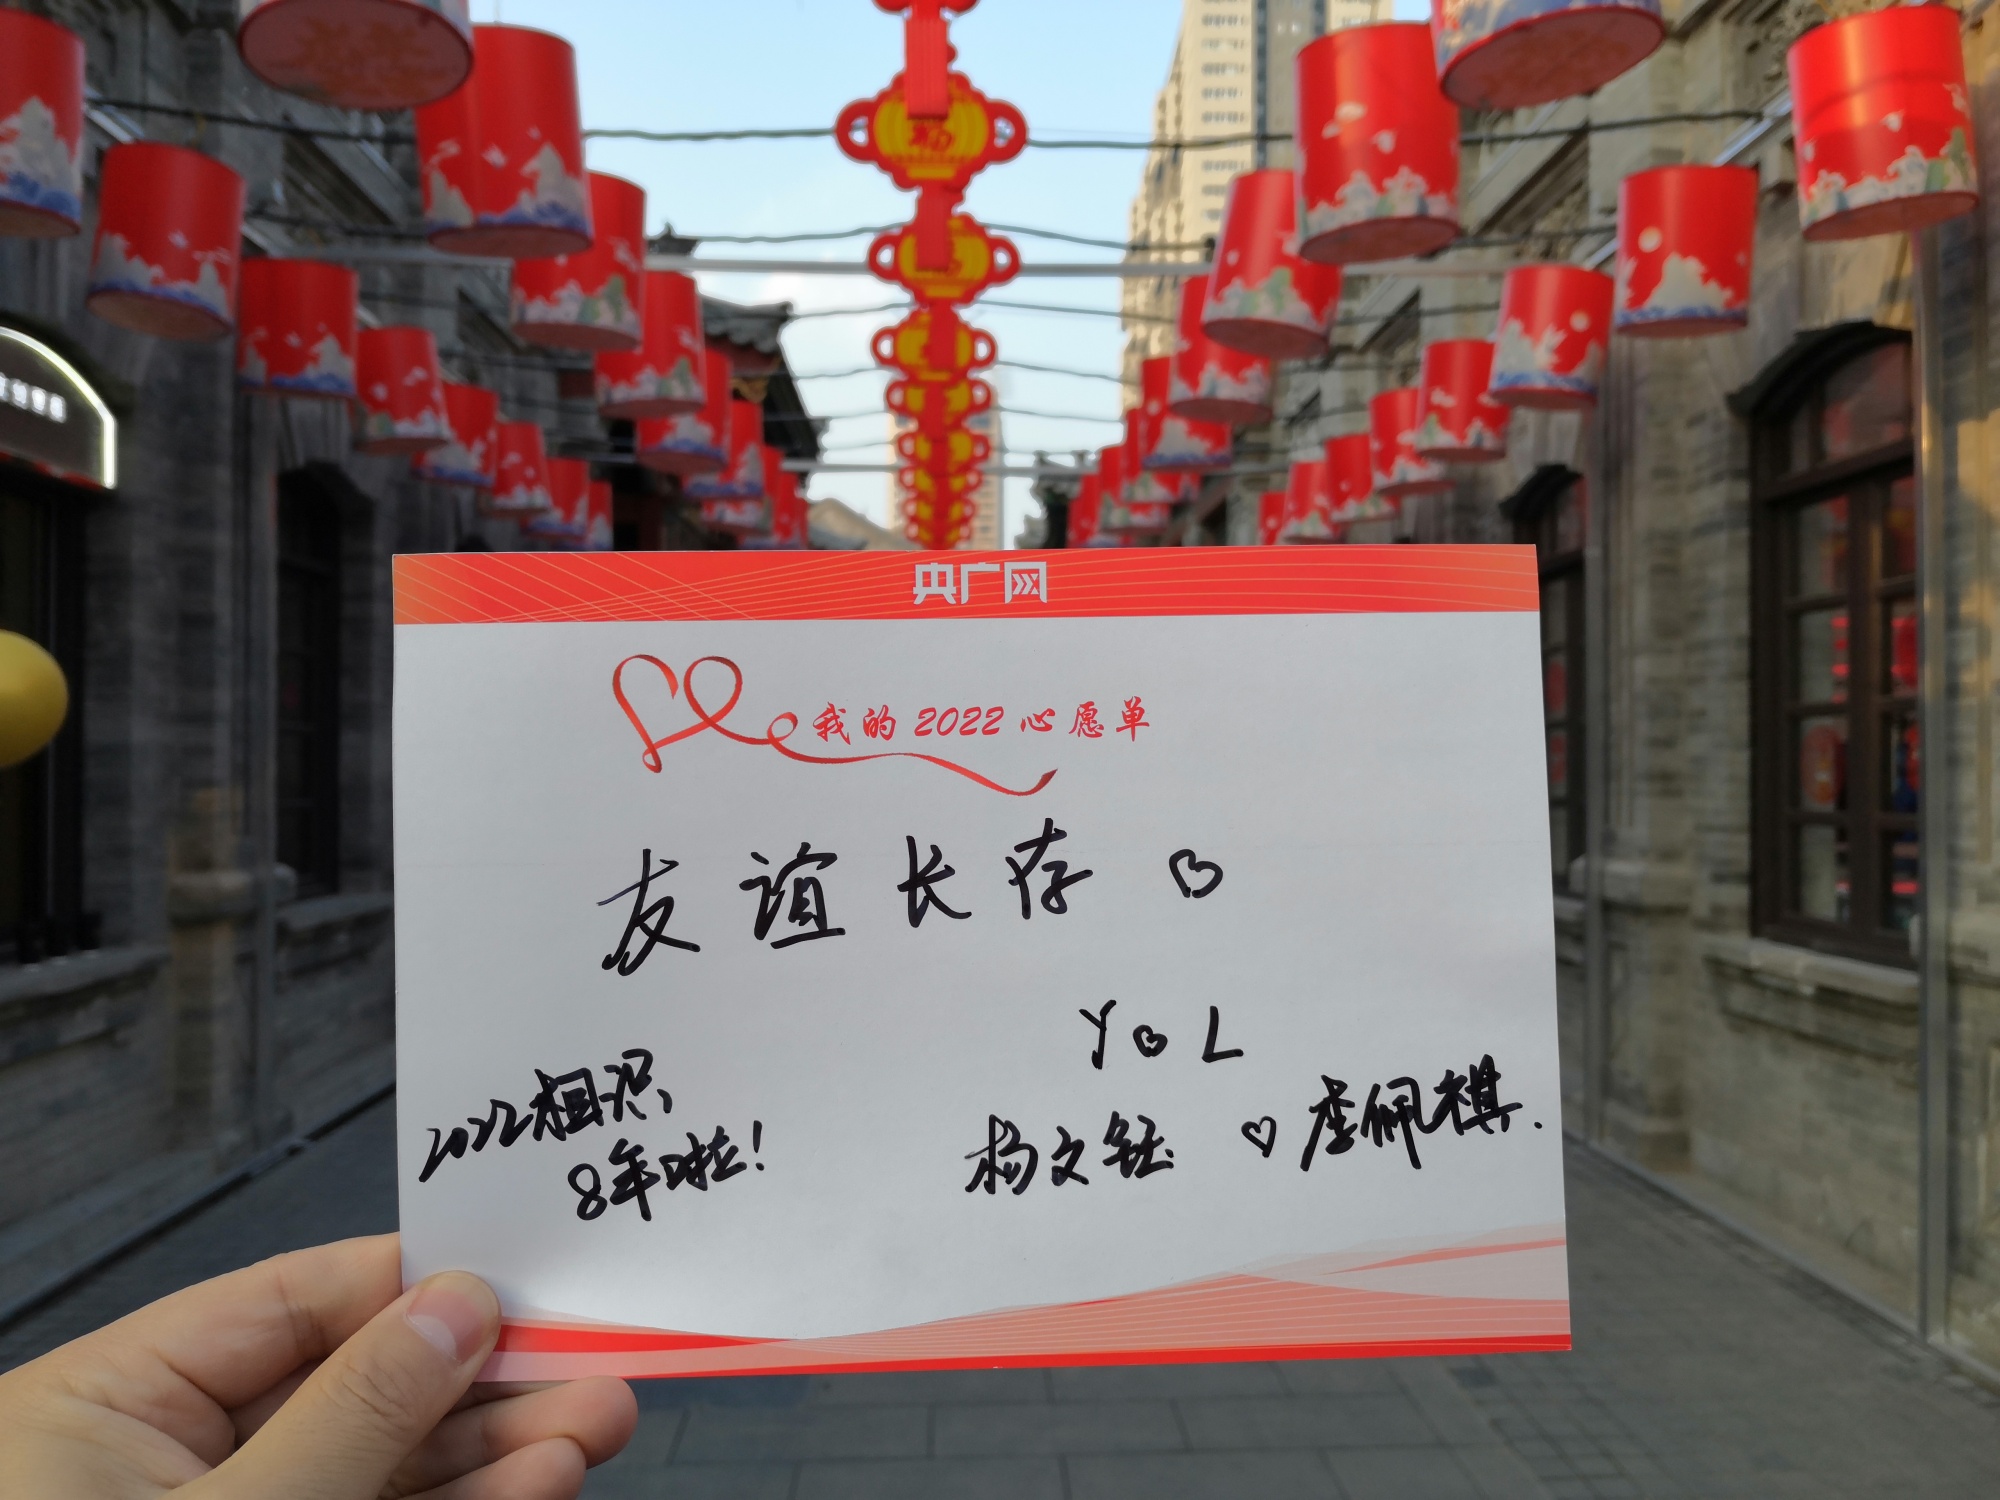 福
央广网
我的2022心愿单
友谊长存
Y L
2022相识
8年啦!
杨文钰 ♡ 李佩祺.